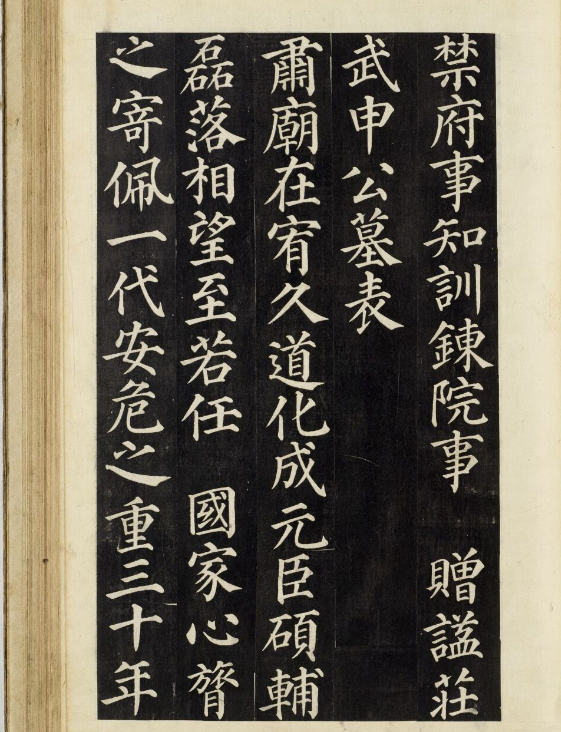 禁府事知訓鍊院事　贈諡莊
武申公墓表
肅廟在宥久道化成元臣碩輔
磊落相望至若任　國家心膂
之寄佩一代安危之重三十年